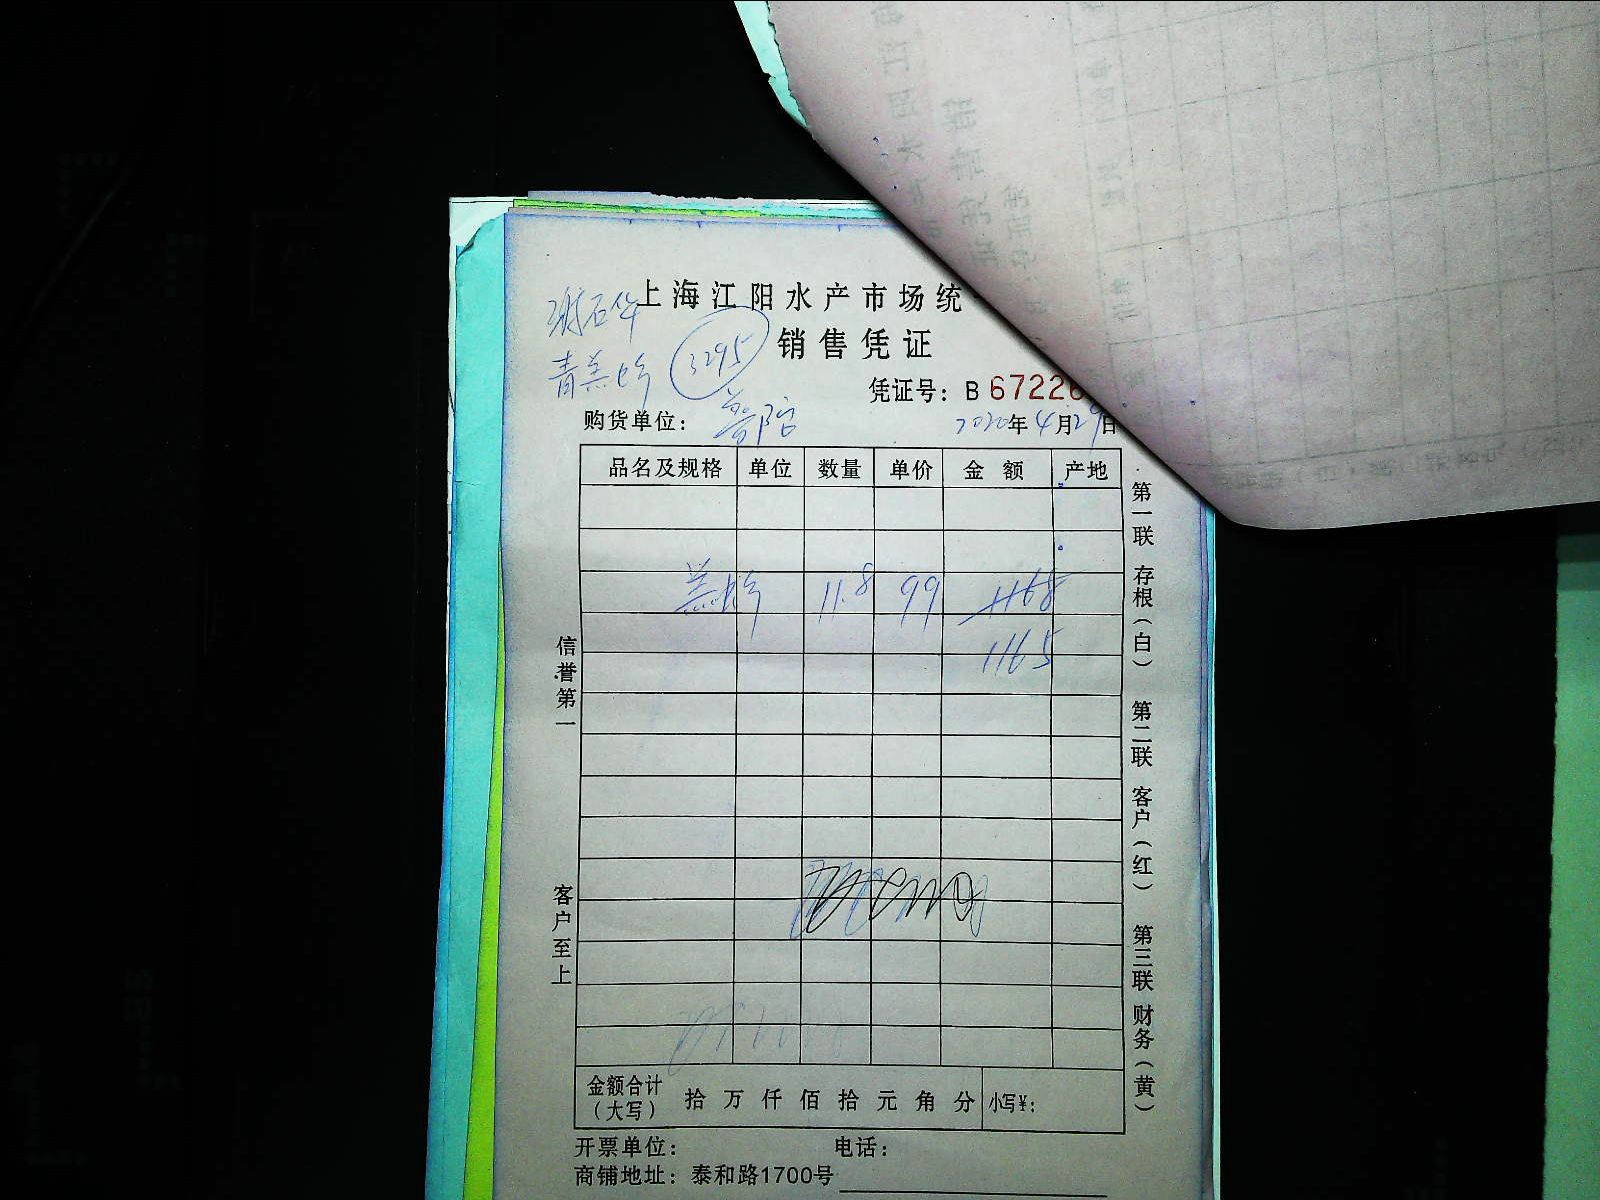 上海江阳水产市场统
销售凭证
3295
凭证号：B 67226
购货单位：
2020年4月29日
品名及规格 单位 数量 单价 金 额 产地
11.8 99 1168
1165
信誉第一
客户至上
第一联 存根（白） 第二联 客户（红） 第三联 财务（黄）
金额合计（大写） 拾 万 仟 佰 拾 元 角 分 小写¥：
开票单位： 电话：
商铺地址：泰和路1700号